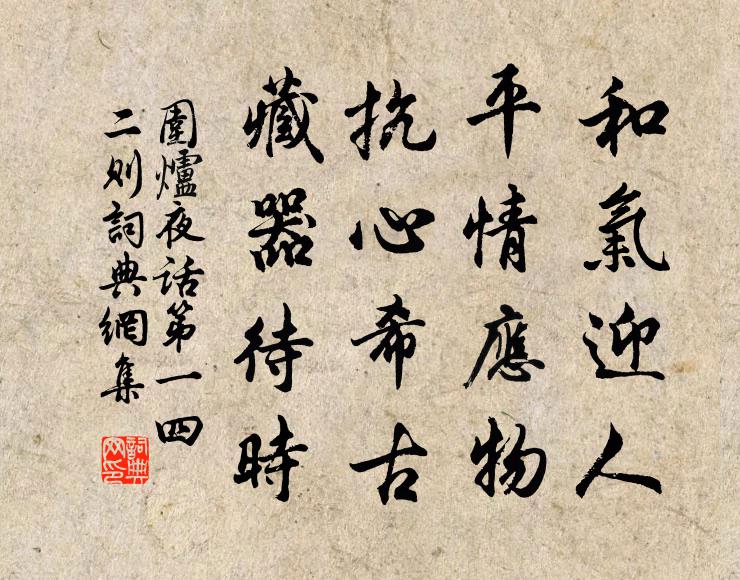 和氣迎人
平情應物
抗心希古
藏器待時
圍爐夜话第一四
二则詞典網集
詞典网印